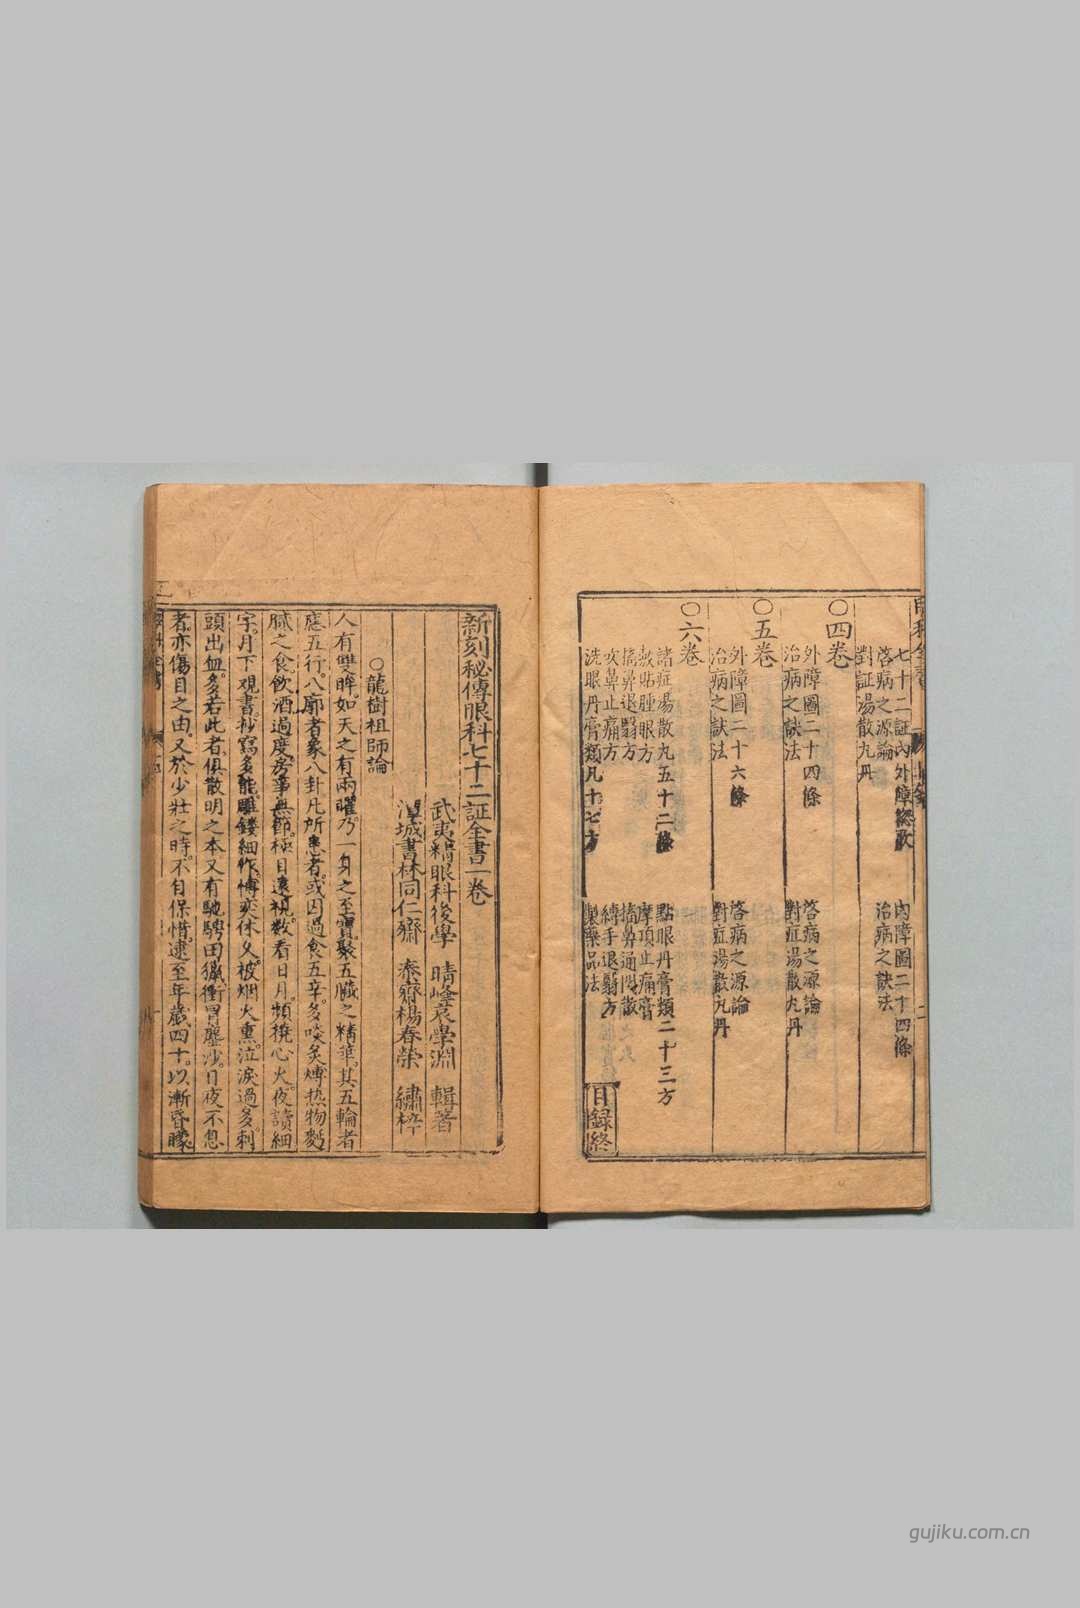 七十二証內外障總歌 內障圖二十四條
啓病之源論 治病之訣法
對証湯散丸丹
○四卷
外障圖二十四條 啓病之源論
治病之訣法 對症湯散丸丹
○五卷
外障圖二十六條 啓病之源論
治病之訣法 對症湯散丸丹
○六卷
諸症湯散丸五十二條 點眼丹膏類二十三方
敷貼腫眼方 摩頂止痛膏
搐鼻退翳方 搐鼻通関散
吹鼻止痛方 縛手退翳方
洗眼丹膏類凡十七方 製藥品法
目録終
新刻秘傳眼科七十二証全書一卷
武夷精眼科後學 晴峰袁學淵 輯著
潭城書林同仁齋 泰齋楊春榮 繡梓
○龍樹祖師論
人有雙眸。如天之有兩曜。乃一身之至寶。聚五臟之精華。其五輪者
應五行。八廓者象八卦。凡所患者。或因過食五辛。多啖炙煿热物麪
膩之食飲酒過度。房事無節。極目遠視。数看日月。頻撓心火。夜讀細
字。月下观書。抄寫多能。雕鏤細作。博奕休久。被烟火熏。泣淚過多。刺
頭出血。多若此者。俱散明之本。又有馳騁田獵。衝冒塵沙。日夜不息
者。亦傷目之由。又於少壯之時。不自保惜。逮至年歲四十。以漸昏矇。
gujiku.com.cn